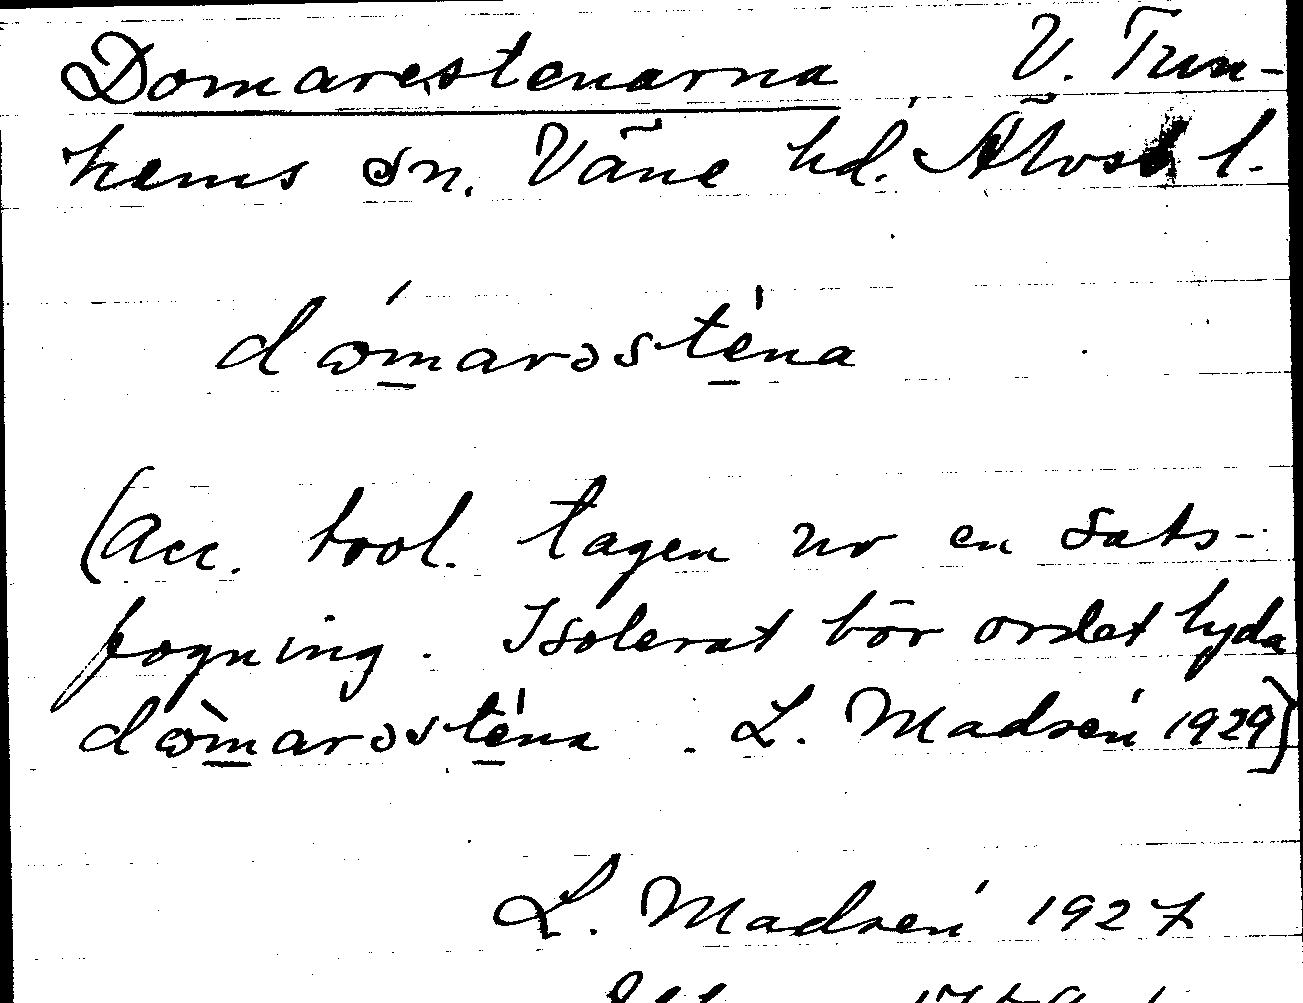 Domarestenarna V. Trun-
hems sn. Väne hd. Älvsb l.
dωmarəsténa
(Acc. trol. tagen ur en sats-
fogning. Isolerat bör ordet lyda
dὼmarəsténa . L. Madsén 1929)
L. Madsén 1927